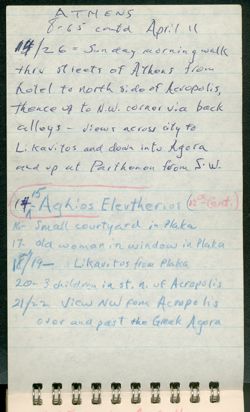 ATHENS
8-65 contd April 11
14/26 = Sunday morning walk
thru streets of Athens from
hotel to north side of Acropolis,
thence up to N.W. corner via back
alleys - views across city to
Likavitos and down into Agora
and up at Parthenon from S.W.
14-15 Aghios Eleutherios 12th Cent.
16- Small courtyard in Plaka
17- old woman in window in Plaka
18/19- Likavitos from Plaka
20- 3 children in st. n. of Acropolis
21/22 View NW from Acropolis
over and past the Greek Agora